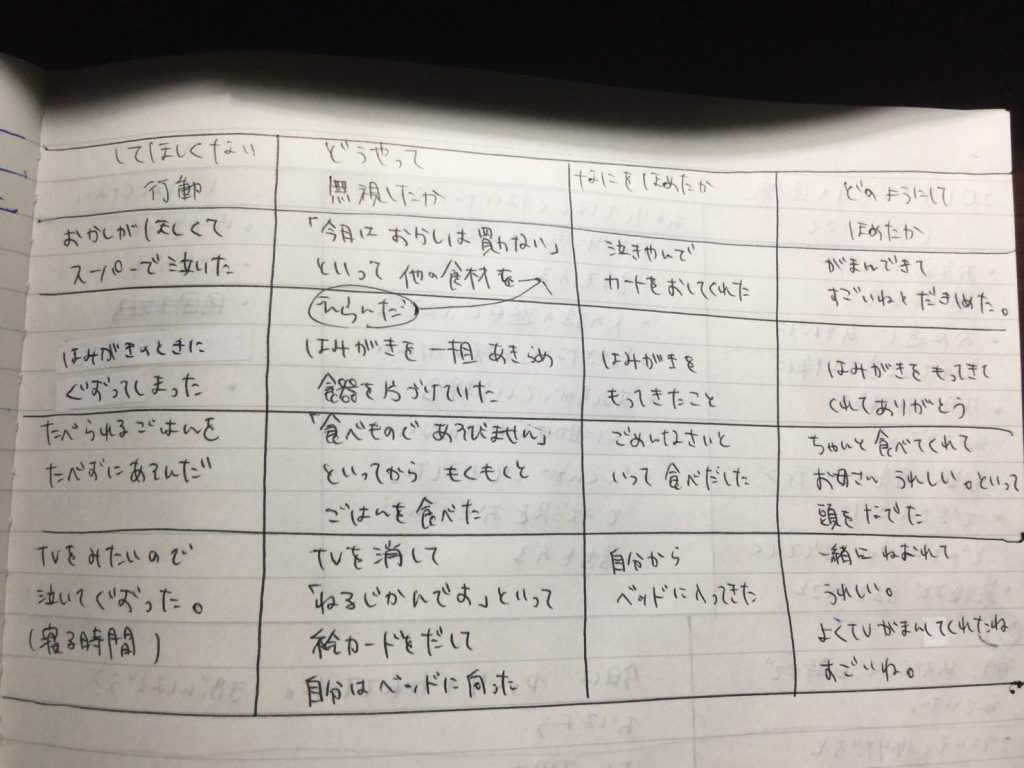 してほしくない
行動
どうやって
無視したか
なにをほめたか
どのようにして
ほめたか
おかしがほしくて
スーパーで泣いた
「今日は おかしは 買わない」
といって 他の食材を
えらんだ
泣きやんで
カートをおしてくれた
がまんできて
すごいねと だきしめた。
はみがきのときに
ぐずってしまった
はみがきを 一担 あきらめ
食器を片づけていた
はみがきを
もってきたこと
はみがきを もってきて
くれてありがとう
たべられるごはんを
たべずにあそんだ
「食べものであそびません」
といってから もくもくと
ごはんを食べた
ごめんなさいと
いって 食べだした
ちゃんと 食べてくれて
お母さん うれしい。といって
頭をなでた
TVをみたいので
泣いてぐずった。
(寝る時間)
TVを消して
「ねるじかんでよ」といって
絵カードをだして
自分はベッドに向った
自分から
ベッドに入ってきた
一緒にねれて
うれしい。
よくTVがまんしてくれたね
すごいね。